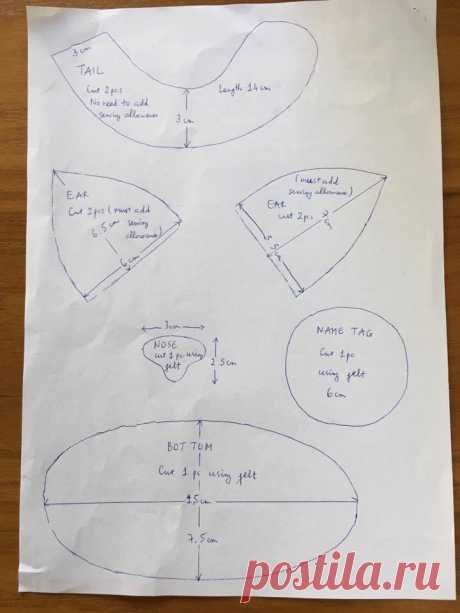 3cm
TAIL
Cut 2pcs
No need to add
sewing allowance
Length 14cm
3cm
EAR
Cut 2pcs (must add
sewing
allowance)
6.5cm
6cm
(must add
sewing allowance)
EAR
Cut 2pcs
3cm
NOSE
Cut 1 pc using
felt
2.5cm
NAME TAG
Cut 1pc
using felt
6cm
BOTTOM
Cut 1 pc using felt
15cm
7.5cm
postila.ru